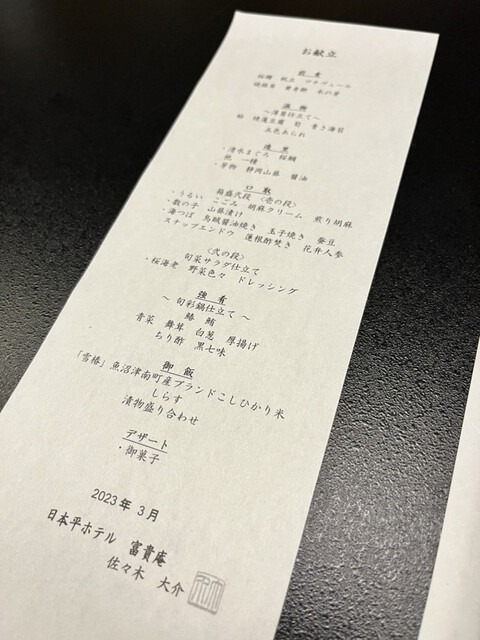 お献立
前菜
桜鯛 帆立 ラタトゥーユ
黄身酢 木の芽
吸物
～清羹仕立て～
蛤 焼蓬豆腐 筍 青さ海苔
五色あられ
造里
・清水まぐろ 桜鯛
他 一種
・芽物 静岡山葵 醤油
口取
箱庭弐段 〈壱の段〉
・うるい こごみ 胡麻クリーム 煎り胡麻
・数の子 山葵漬け
・海つぼ 烏賊醤油焼き 玉子焼き 蚕豆
スナップエンドウ 蓮根酢焚き 花弁人参
〈弐の段〉
旬菜サラダ仕立て
・桜海老 野菜色々 ドレッシング
強肴
～ 旬彩鍋仕立て ～
鰆 鮪
青菜 舞茸 白葱 厚揚げ
ちり酢 黒七味
御飯
「雪椿」魚沼津南町産ブランドこしひかり米
しらす
漬物盛り合わせ
デザート
・御菓子
2023年 3月
日本平ホテル 富貴庵
佐々木 大介